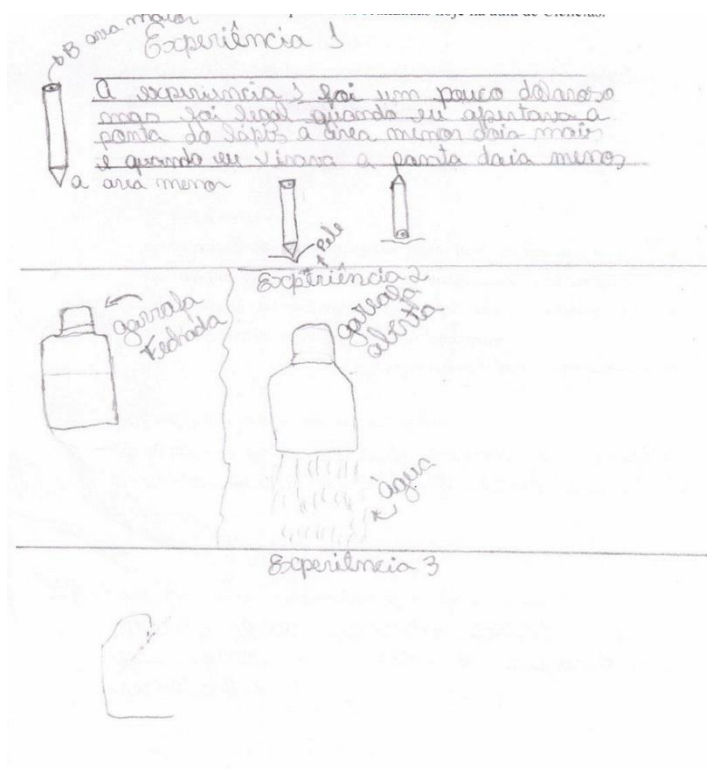 hoje na aula de Ciências.
B area maior
Experiência 1
A experiência 1 foi um pouco doloroso
mas foi legal quando eu apertava a
ponta do lápis a área menor doia mais
e quando eu virava a ponta doia menos
a area menor
Pele
Experiência 2
garrafa
Fechada
garrafa
aberta
água
Experiência 3